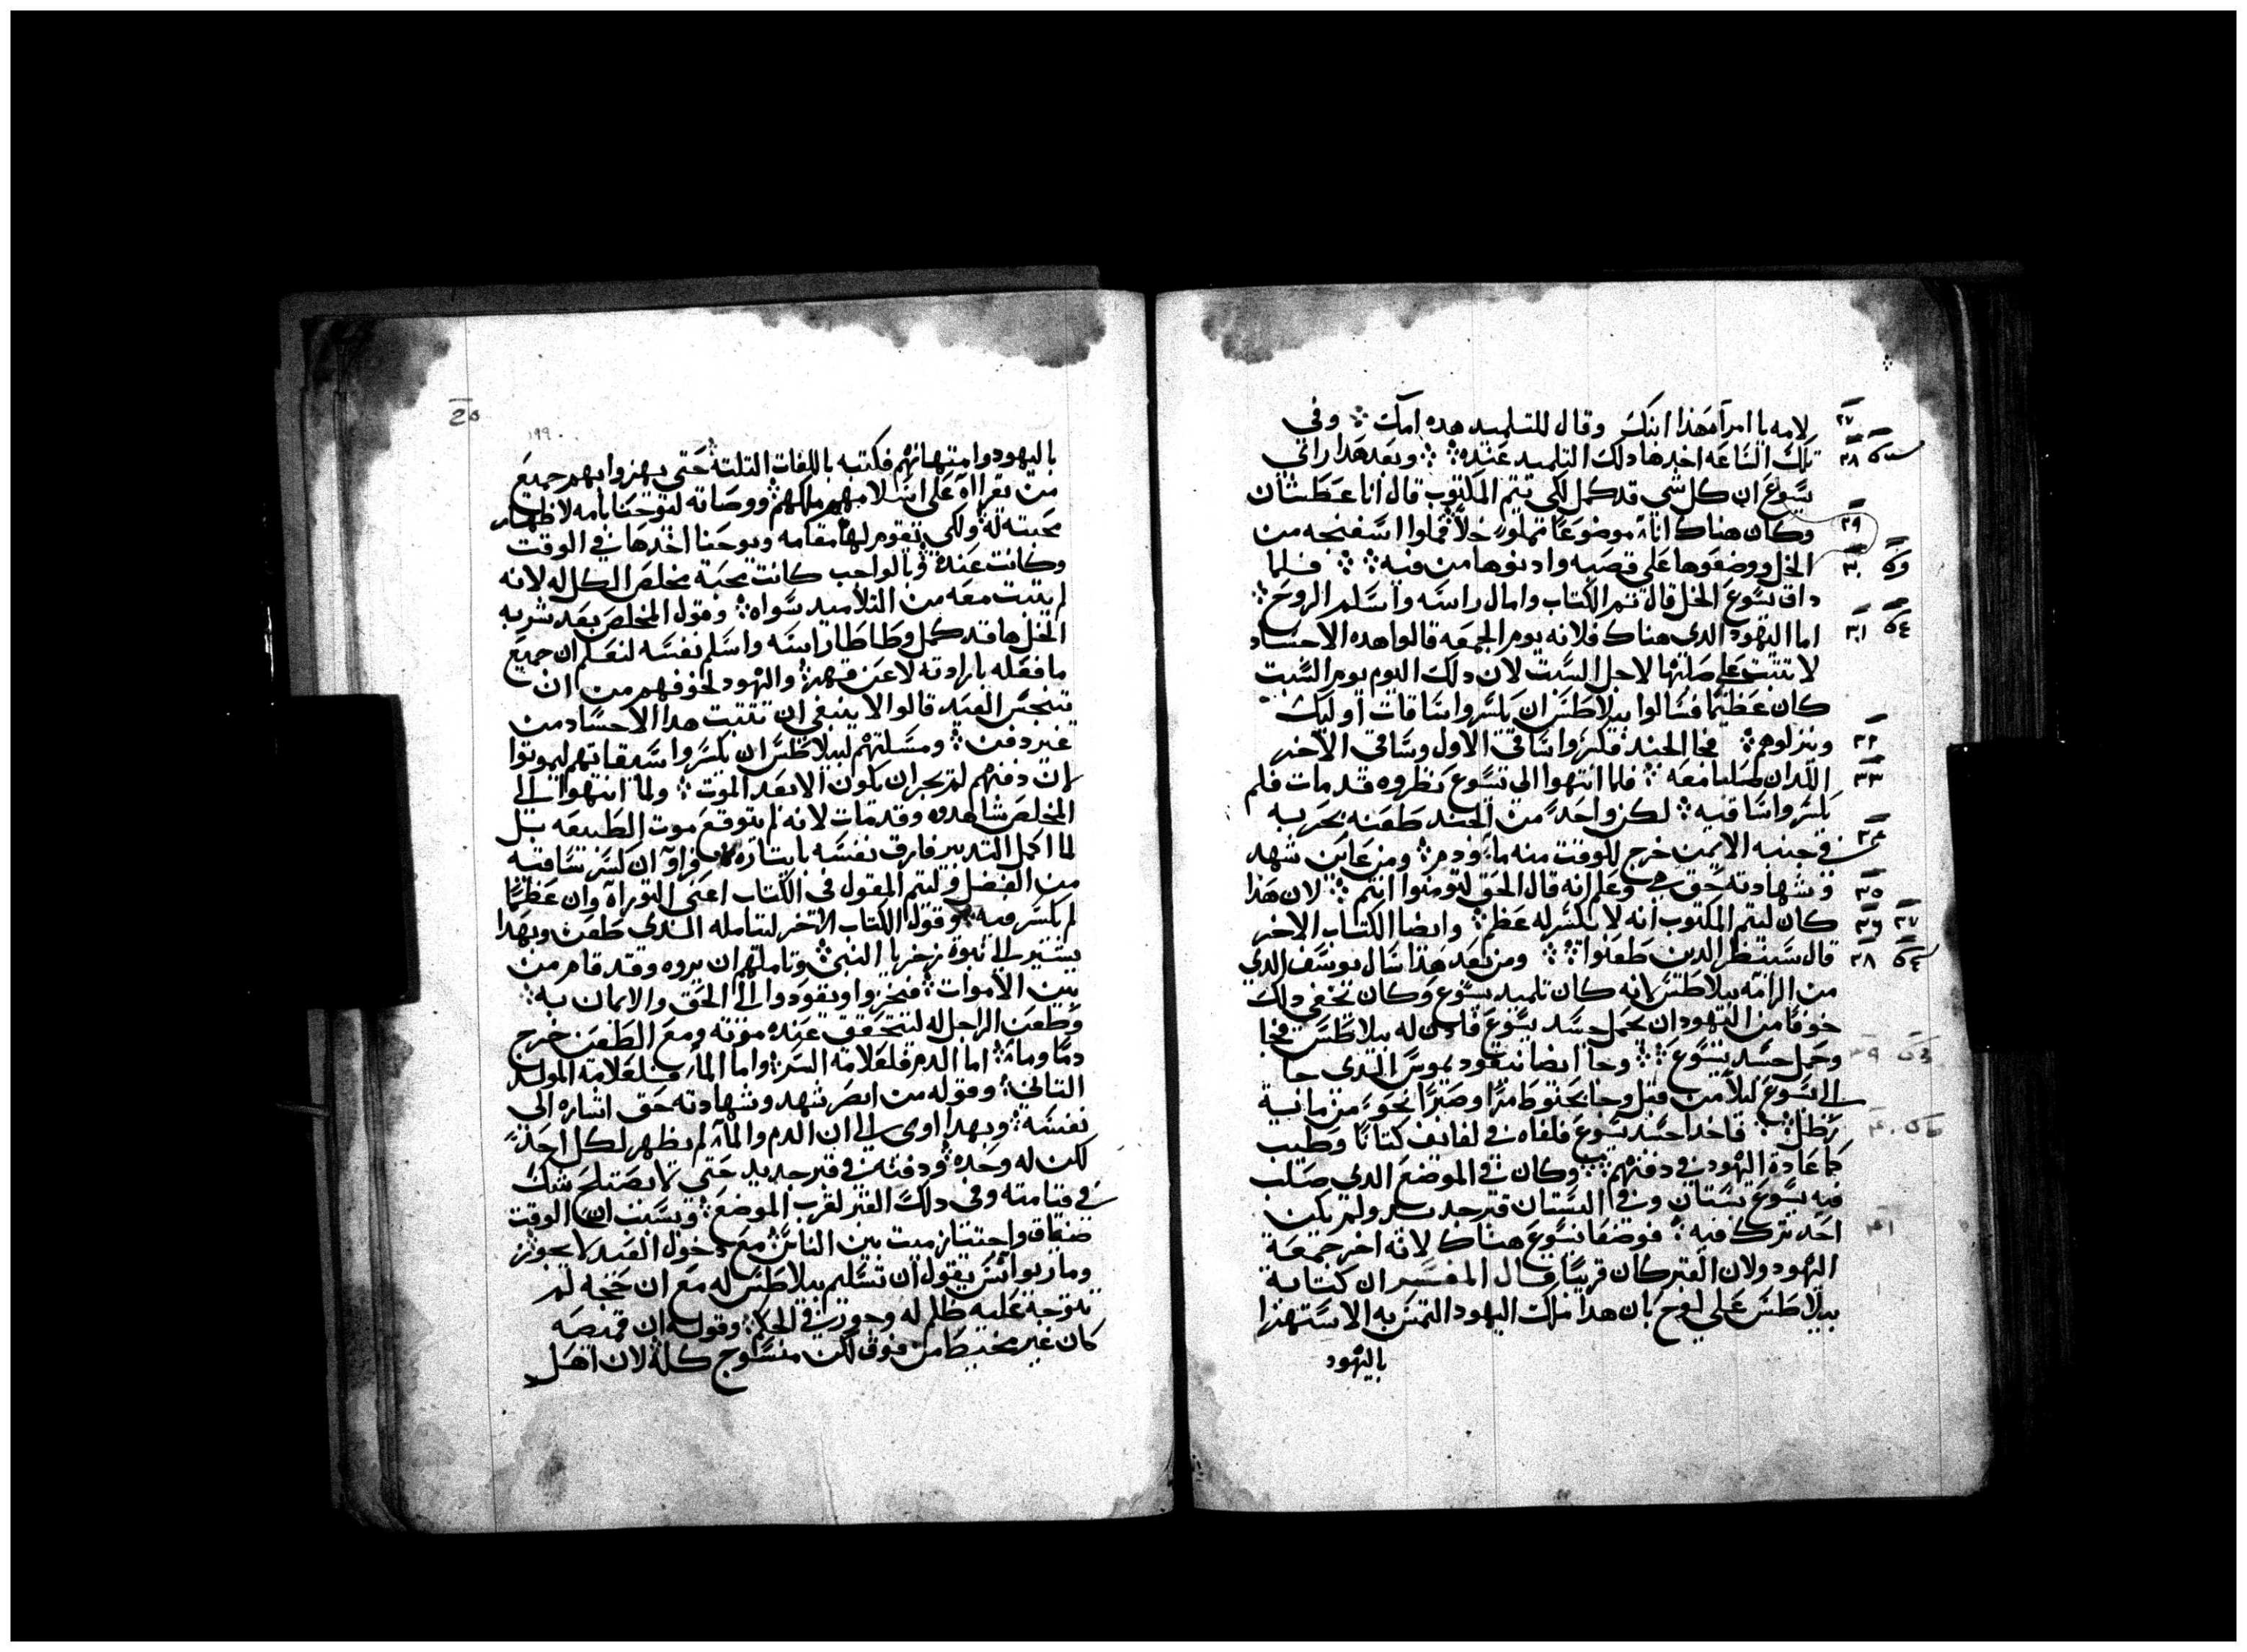 لامه يا امراه هذا ابنك وقال للتلميد هده امك وفي
تلك الساعه اخدها دلك التلميد عنده وبعد هدا راي
يسوع ان كل شي قد كمل لكي يتم المكتوب قال انا عطشان
وكان هناك اناء موضوعًا مملوءً خلاً فملوا اسفنجه من
الخل ووضعوها على قصبه وادنوها من فيه فلما
داق يسوع الخل قال تم الكتاب وامال راسه واسلم الروح
اما اليهود الدي هناك فلانه يوم الجمعه قالوا هده الاجساد
لا تثبت على صلبها لاجل السبت لان دلك اليوم يوم السبت
كان عظيمًا فسالوا بيلاطس ان يكسروا ساقات اوليك
وينزلوهم فجا الجند فكسروا ساقي الاول وساقي الاخر
اللدان صلبا معه فلما انتهوا الى يسوع نظروه قد مات فلم
يكسروا ساقيه لكن واحدً من الجند طعنه بحربه
في جنبه الايمن خرج للوقت منه ماء ودم ومن عاين شهد
وشهادته حق هي وعلم انه قال الحق لتومنوا انتم لان هذا
كان ليتم المكتوب انه لا يكسر له عظم وايضا الكتاب الاخر
قال سينظر الدين طعنوا ومن بعد هذا سال يوسف الدي
من الرامه بيلاطس لانه كان تلميد يسوع وكان تخفي دلك
خوفًا من اليهود ان يحمل جسد يسوع فادن له بيلاطس فجا
وحمل جسد يسوع وجا ايضا نيقوديموس الدي جا
الى يسوع ليلاً من قبل وجا بحنوط مرًا وصبرًا نحوً من مايه
رطل فاخدا جسد يسوع فلفاه في لفايف كتانًا وطيب
كما عادة اليهود في دفنهم وكان في الموضع الدي صلب
فيه يسوع بستان وفي البستان قبر جديد ولم يكن
احد ترك فيه فوضعا يسوع هناك لانه اخر جمعة
اليهود ولان القبر كان قريبًا قال المفسر ان كتابة
بيلاطس على لوح بان هدا ملك اليهود التمس به الاستهزا
باليهود
باليهود وامتهانهم فكتبه باللغات الثلثة حتى يهزوا بهم جميع
من يقرااه على اسلامهم ملكهم ووصاته ليوحنا بامه لاظهار
محبته له ولكي يقوم لها مقامه ويوحنا اخدها في الوقت
وكانت عنده وبالواجب كانت محبة مخلص الكل له لانه
لم يثبت معه من التلاميد سواه وقول المخلص بعد شربه
الخل ها قد كمل وطاطا راسه واسلم نفسه لنعلم ان جميع
ما فعله بارادته لا عن قهر واليهود لخوفهم من ان
يتنجس العيد قالوا لا ينبغي ان تثبت هدا الاجساد من
غير دفن ومسلتهم لبيلاطس ان يكسروا سيقاتهم ليموتوا
لان دفنهم لم يجز ان يكون الا بعد الموت ولما انتهوا الى
المخلص شاهدوه وقد مات لانه لم يتوقع موت الطبيعه بل
لما اكمل التدبير فارق نفسه بايثاره وراوا ان كسر ساقيه
من الفضل وليتم المقول في الكتاب اعني التوراه وان عظمًا
لم يكسر فيه وقول الكتاب الاخر ليتامله الدي طعن وبهدا
يشير الى نبوة زخريا النبي وتاملهم ان يروه وقد قام من
بين الاموات فيخزوا ويقودوا الى الحق والايمان به
وطعن الراجل له ليتحقق عنده موته ومع الطعن خرج
دمًا وماءً اما الدم فلعلامه السر واما الماء فلعلامة المولد
الثاني وقوله من ابصر شهد وشهادته حق اشاره الى
نفسه وبهدا اومى الى ان الدم والماء لم يظهر لكل احدً
لكن له وحده ودفنه في قبر جديد حتى لا يصتلح شك
في قيامته وفي دلك القبر لقرب الموضع وبسبب ان الوقت
ضاق واجتياز ميت بين الناس مع دخول العيد لا يجوز
وماريوانس يقول ان تسليم بيلاطس له مع ان حجه لم
تتوجه عليه ظلم له وجور في الحكم وقوله ان قميصه
كان غير مخيط من فوق لكن منسوج كله لان اهل